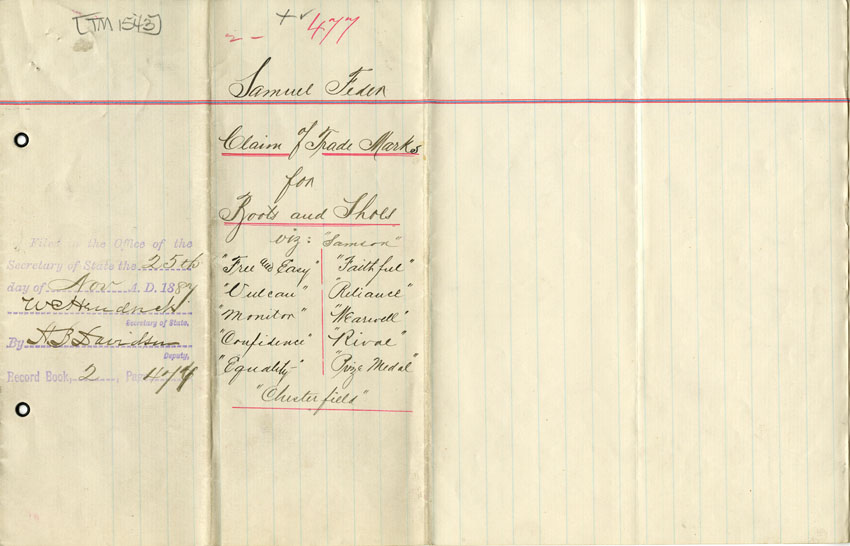 [TM 1543]
477
Samuel Feder
Claim of Trade Marks
for
Boots and Shoes
viz: "Samson"
"Free and Easy" "Faithful"
"Vulcan" "Reliance"
"Monitor" "Wearwell"
"Confidence" "Rival"
"Equality" "Prize Medal"
"Chesterfield"
Filed in the Office of the
Secretary of State the 25th
day of Nov A. D. 1889
W E Hendricks
Secretary of State.
By N B Davidson
Deputy,
Record Book, 2, Page